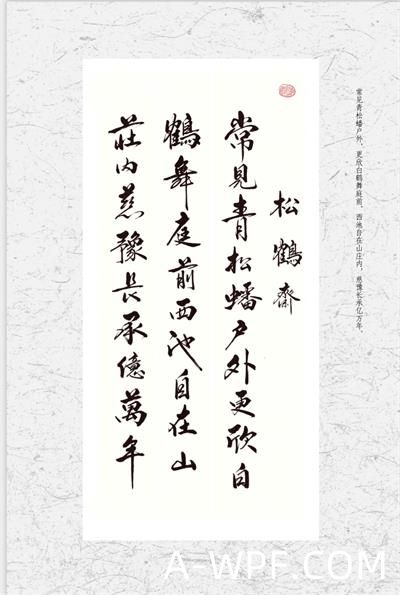 常见青松蟠户外，更欣白鹤舞庭前。西池自在山庄内，慈豫长承亿万年。
松鶴齋
常見青松蟠户外更欣白
鶴舞庭前西池自在山
莊内慈豫長承億萬年
A-WPF.COM